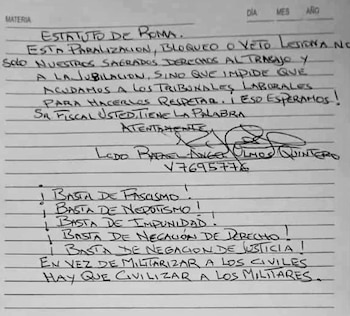 MATERIA DÍA MES AÑO
ESTATUTO DE ROMA.
ESTA PARALIZACION, BLOQUEO O VETO LESIONA NO
SOLO NUESTROS SAGRADOS DERECHOS AL TRABAJO Y
A LA JUBILACION, SINO QUE IMPIDE QUE
ACUDAMOS A LOS TRIBUNALES LABORALES
PARA HACERLOS RESPETAR. ¡ESO ESPERAMOS!
SR FISCAL USTED TIENE LA PALABRA
ATENTAMENTE
LCDO RAFAEL ANGEL OLMOS QUINTERO
V7695776
¡BASTA DE FASCISMO!
¡BASTA DE NEPOTISMO!
¡BASTA DE IMPUNIDAD!
¡BASTA DE NEGACIÓN DE DERECHO!
¡BASTA DE NEGACION DE JUSTICIA!
EN VEZ DE MILITARIZAR A LOS CIVILES
HAY QUE CIVILIZAR A LOS MILITARES.